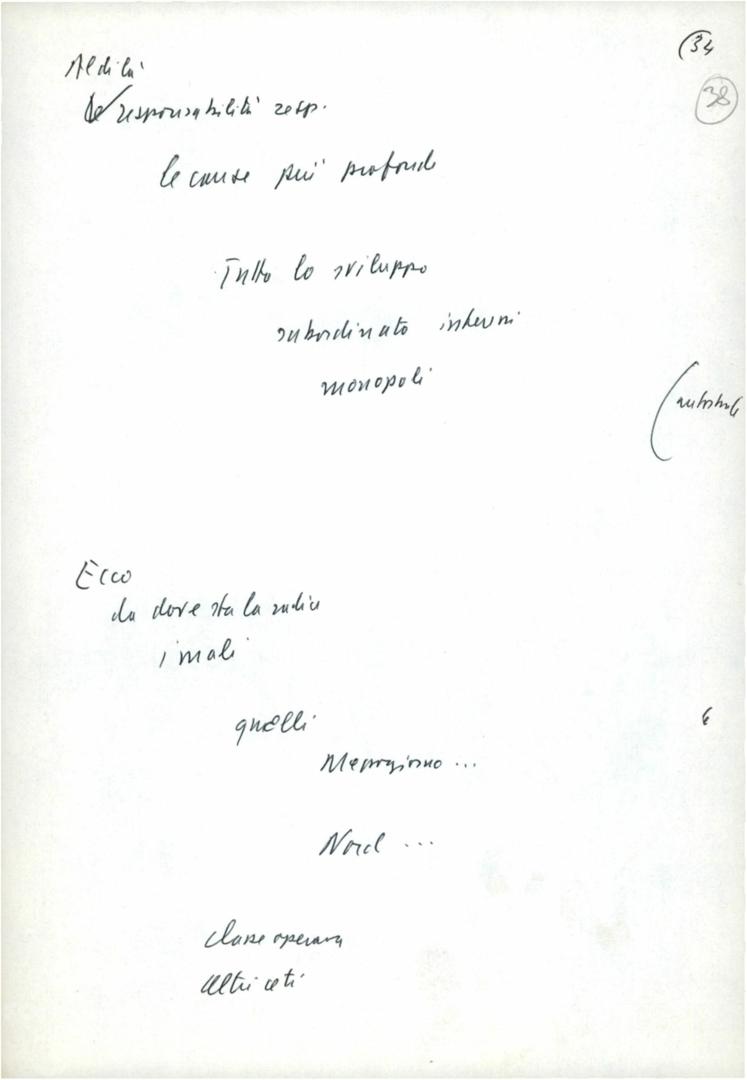 (34
38
Al di là
le responsabilità resp.
le cause più profonde
Tutto lo sviluppo
subordinato interni
monopoli
(autostrade
Ecco
da dove sta la radice
i mali
quelli
Mezzogiorno ...
Nord ...
classe operaia
altri ceti